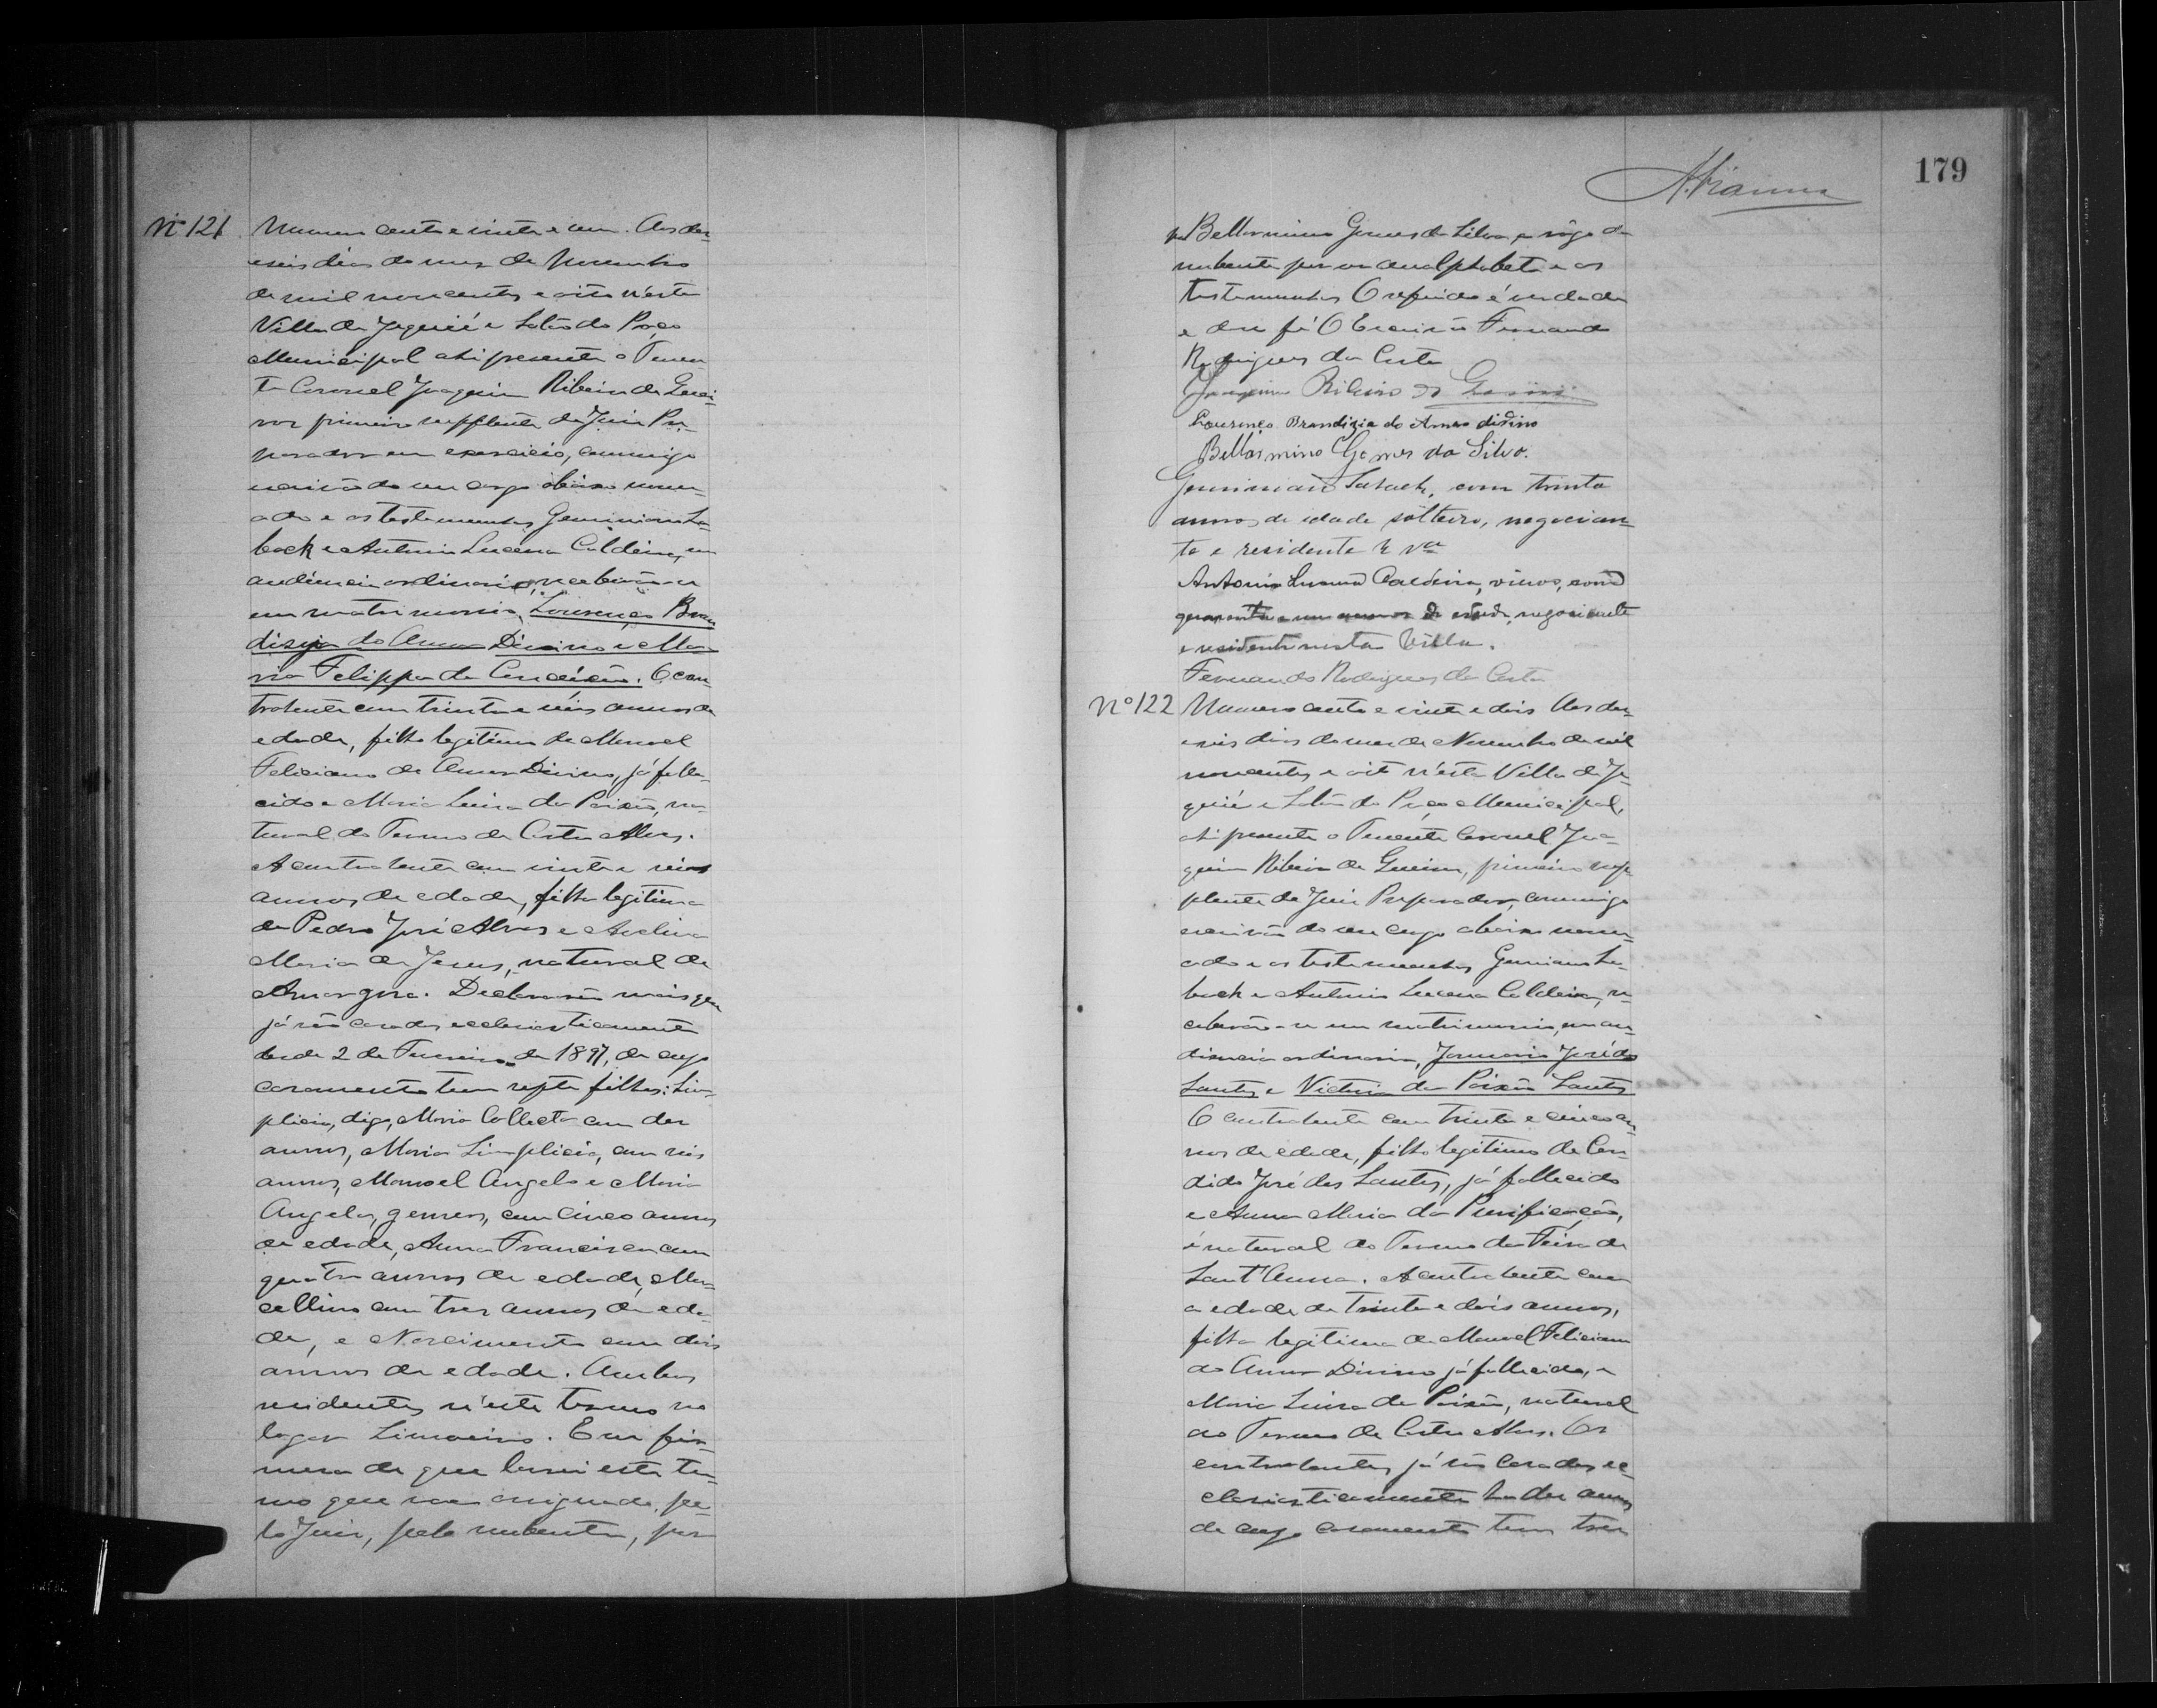 Nº 121
Numero cento e vinte e um. Aos dez-
eseis dias do mez de Novembro
de mil novecentos e oito n'esta
Villa de Jequié e Salão do Paço
Municipal ahi presente o Tenen-
te Coronel Joaquim Ribeiro de
primeiro supplente do Juiz Pre-
parador em exercicio, commigo
escrivão do seu cargo abaixo nome-
ado e as testemunhas Geminiano Sa-
back e Antonio Lucena Caldeira, em
audiencia ordinaria, receberão-se
em matrimonio, Lourenço Bran
disia do Amor Divino e Ma-
ria Felippa da Conceição. O con-
trahente com trinta e seis annos de
edade, filho legitimo de Manoel
Feliciano do Amor Divino, já falle-
cido e Maria Luisa da Paixão, na-
tural do Termo de Castro Alves.
A contrahente com vinte e seis
annos de edade, filha legitima
de Pedro José Alves e Avelina
Maria de Jesus, natural de
Amargosa. Declararão mais que
já são casados ecclesiasticamente
desde 2 de Fevereiro de 1897, de cujo
casamento tem septe filhos: Sim-
plicia, digo, Maria Collecta com dez
annos, Maria Simplicia, com seis
annos, Manoel Angelo e Maria
Angela, gemeos, com cinco annos
de edade, Anna Francisca com
quatro annos de edade, Mar-
cellino com tres annos de eda-
de, e Nascimento com dois
annos de edade. Ambos
residentes n'este termo no
logar Limoeiro. E em fir-
mesa do que lavrei este ter-
mo que vae assignado, pe-
lo Juiz, pelo nubente, por
179
A. Vianna
Bellarmino Gomes da Silva, a rôgo da
nubente por ser analphabeta e as
testemunhas O referido é verdade
e dou fé O Escrivão Fernando
Rodrigues da Costa
Joaquim Ribeiro de
Lourenço Brandizia do Amor divino
Bellarmino Gomes da Silva.
Geminiano Saback, com trinta
annos de idade sólteiro, negocian-
te e residente n. va
Antonio Lucena Caldeira, viuvo, com
quarenta e um annos de edade, negociante
e residente nesta Villa.
Fernando Rodrigues da Costa
Nº 122
Numero cento e vinte e dois Aos dez-
eseis dias do mez de Novembro de mil
novecentos e oito n'esta Villa de Je-
quié e Salão do Paço Municipal,
ahi presente o Tenente Coronel Joa-
quim Ribeiro de primeiro sup-
plente do Juiz Preparador, commigo
escrivão do seu cargo abaixo nome-
ado e as testemunhas Geminiano Sa-
back e Antonio Lucena Caldeira, re-
ceberão-se em matrimonio, em au-
diencia ordinaria, Januario José dos
Santos e Victoria da Paixão Santos
O contrahente com trinta e cinco an-
nos de edade, filho legitimo de Can-
dido José dos Santos, já fallecido
e Anna Maria da Purificação,
é natural do Termo da Feira de
Sant'Anna. A contrahente com
a edade de trinta e dois annos,
filha legitima de Manoel Feliciano
do Amor Divino já fallecido, e
Maria Luisa da Paixão, natural
do Termo de Castro Alves. Os
contrahentes já são casados ec-
clesiasticamente ha dez annos
de cujo casamento tem tres